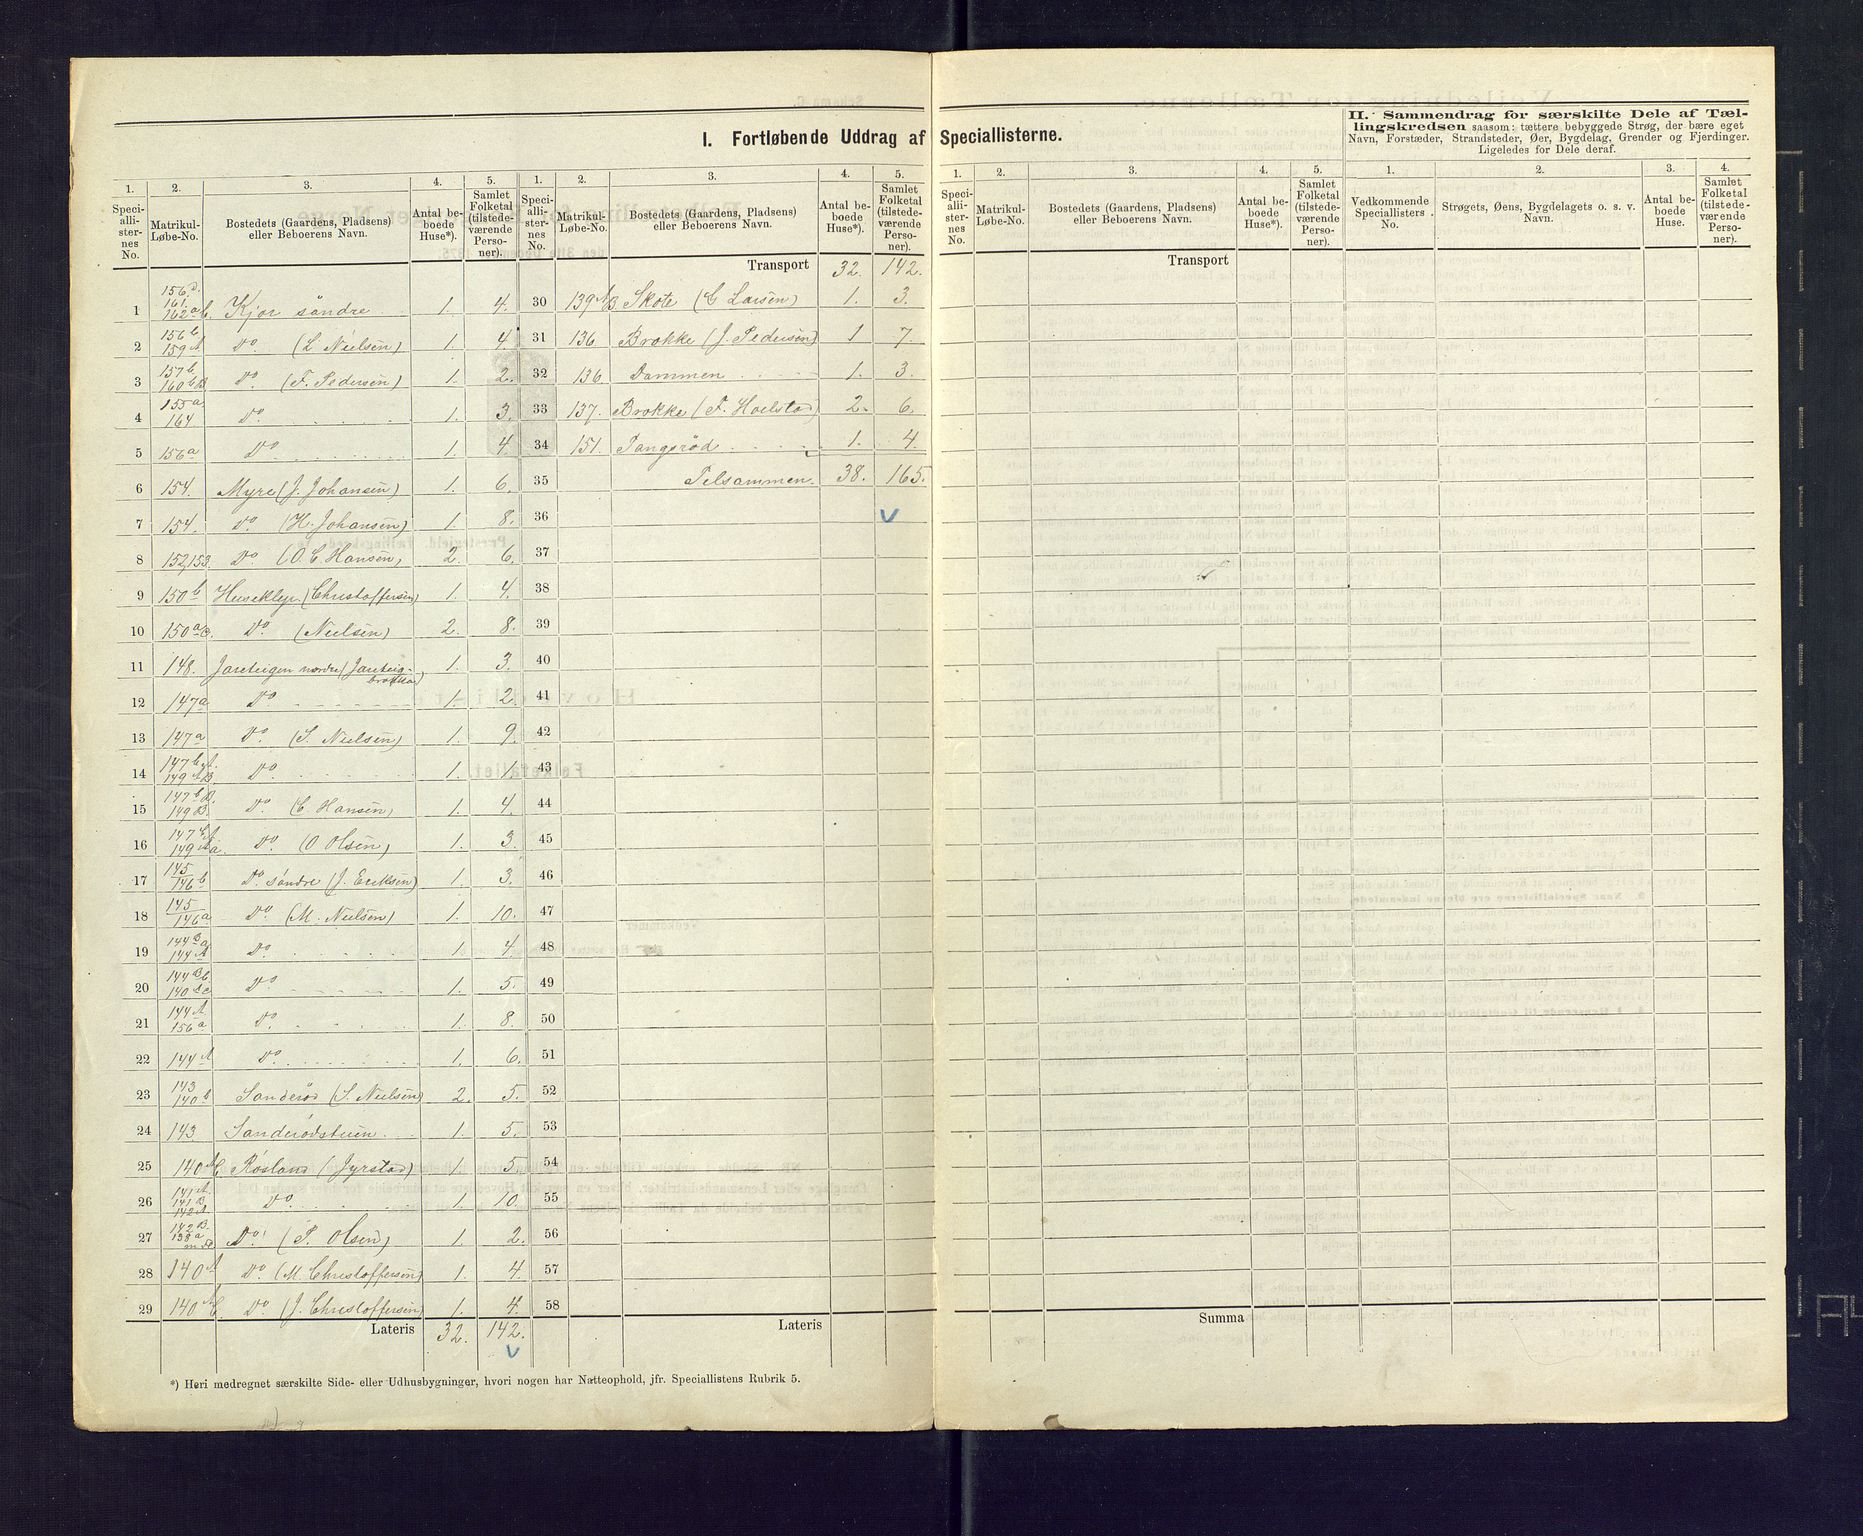 I. Fortløbende Uddrag af Speciallisterne.
II. Sammendrag for særskilte Dele af Tællingskredsen saasom: tættere bebyggede Strøg, der bære eget Navn, Forstæder, Strandsteder, Øer, Bygdelag, Grender og Fjerdinger. Ligeledes for Dele deraf.
1. 2. 3. 4. 5. 1. 2. 3. 4. 5. 1. 2. 3. 4. 5. 1. 2. 3. 4.
Speciallisternes No. Matrikul-Løbe-No. Bostedets (Gaardens, Pladsens) eller Beboerens Navn. Antal beboede Huse*). Samlet Folketal (tilstedeværende Personer).
Speciallisternes No. Matrikul-Løbe-No. Bostedets (Gaardens, Pladsens) eller Beboerens Navn. Antal beboede Huse*). Samlet Folketal (tilstedeværende Personer).
Speciallisternes No. Matrikul-Løbe-No. Bostedets (Gaardens, Pladsens) eller Beboerens Navn. Antal beboede Huse*). Samlet Folketal (tilstedeværende Personer).
Vedkommende Speciallisters No. Strøgets, Øens, Bygdelagets o. s. v. Navn. Antal beboede Huse. Samlet Folketal (tilstedeværende Personer).
1 156 d. 161. 162 a b. Kjør søndre 1. 4.
2 156 b 159 A Do. (L Nielsen) 1. 4.
3 157 b 160 b B Do. (F. Pedersen) 1. 2.
4 155 a 164 Do. 1. 3.
5 156 a Do. 1. 4.
6 154. Myre (J. Johansen) 1. 6.
7 154. Do (H. Johansen) 1. 8.
8 152, 153. Do (O. C. Hansen) 2. 6.
9 150 b Huseklep (Christoffersen) 1. 4.
10 150 a/c. Do. (Nielsen) 2. 8.
11 148. Jareteigen nordre (Jareteigbrokka) 1. 3.
12 147 a Do 1. 2.
13 147 a Do. (S. Nielsen) 1. 9.
14 147 b A. 149 A B. Do. 1. 1.
15 147 b B. 149 B. Do (C Hansen) 1. 4.
16 147 b A 149 A a. Do. (O Olsen) 1. 3.
17 145 146 b Do. søndre (J. Eriksen) 1. 3.
18 145 146 a Do. (M. Nielsen) 1. 10.
19 144 B a 144 A Do. 1. 4
20 144 B b 140 Do 1. 5.
21 144 A 156 a Do. 1. 8.
22 144 A Do. 1. 6.
23 143 140 b Sanderød (S. Nielsen) 2. 5.
24 143 Sanderødstuen 1. 5.
25 140 Røsland (Jyrstad) 1. 5
26 141 A. 141 B 142 A Do. 1. 10.
27 142 B. 138 a Do. (P. Olsen) 1. 2.
28 140 A Do. (M. Christoffersen) 1. 4
29 140 Do (J. Christoffersen) 1. 4.
Lateris 32. 142.
Transport 32. 142.
30 139 A B Skote (C Larsen) 1. 3.
31 136 Brokke (J. Pedersen) 1 7.
32 136 Dammen 1. 3.
33 137. Brokke (F. Hoelstad) 2. 6.
34 151. Tangerød 1. 4.
35 Tilsammen. 38. 165.
36
37
38
39
40
41
42
43
44
45
46
47
48
49
50
51
52
53
54
55
56
57
58
Lateris
Transport
Summa
*) Heri medregnet særskilte Side- eller Udhusbygninger, hvori nogen har Natteophold, jfr. Speciallistens Rubrik 5.